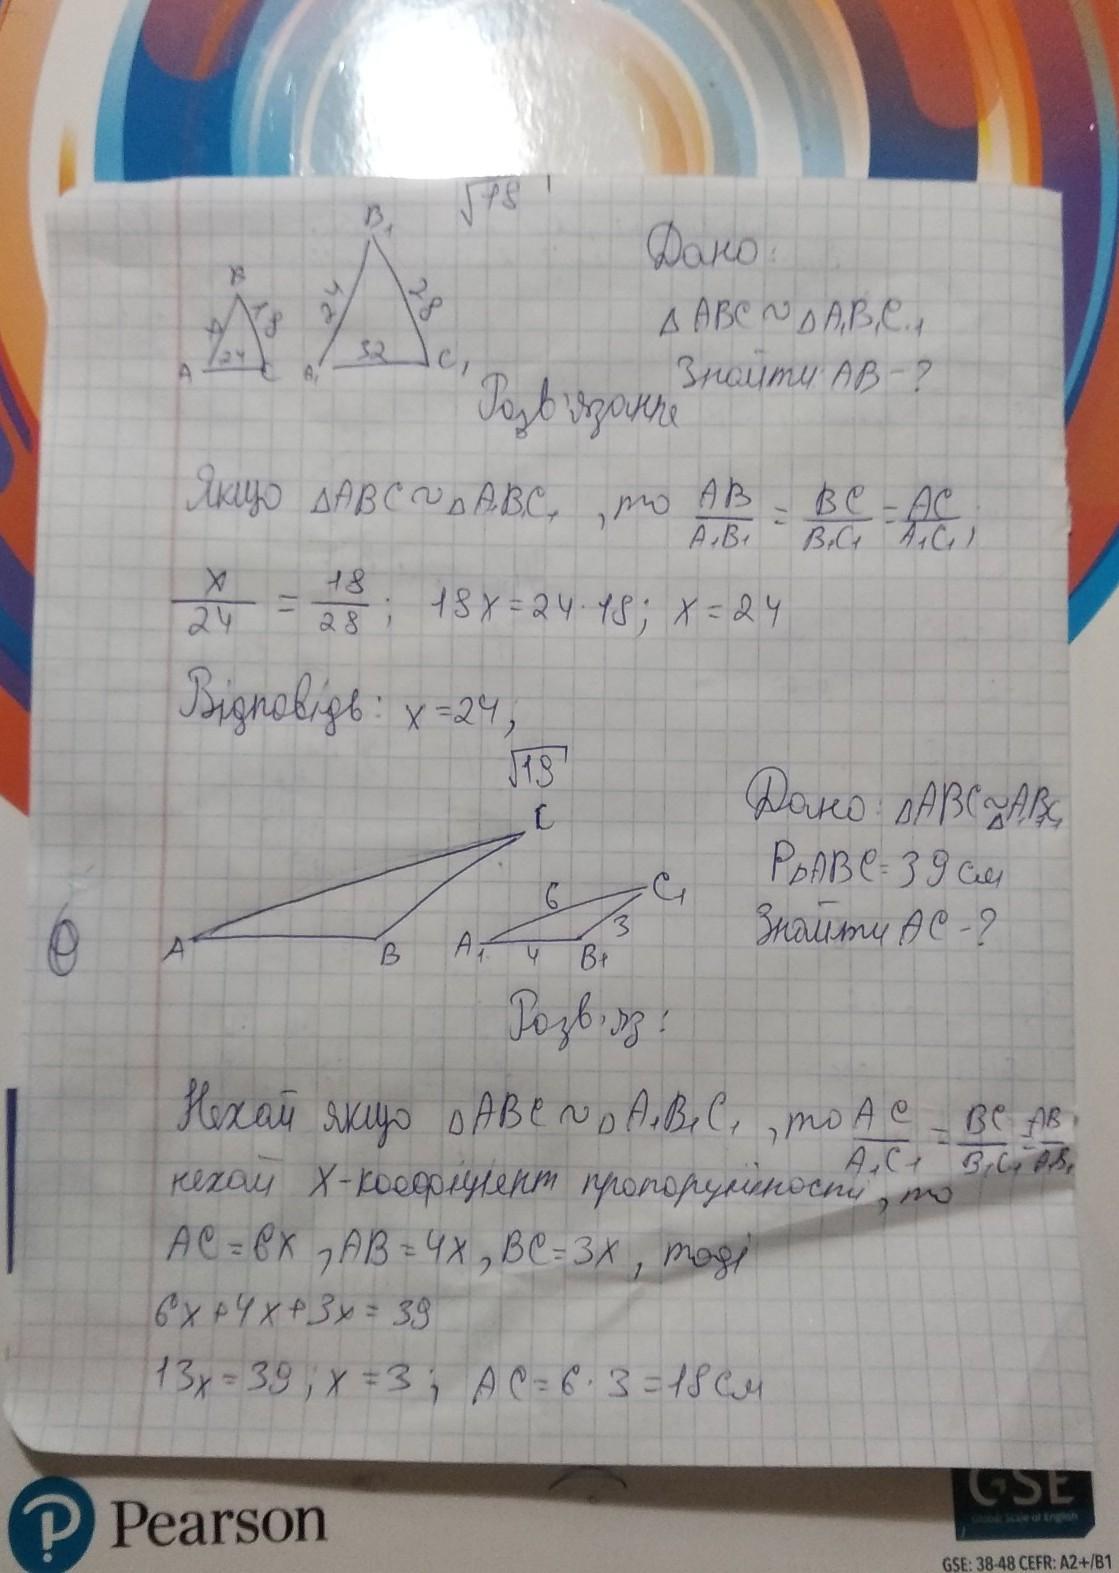 √18
B₁
B
24
28
x
18
24
32
A
C
A₁
C₁
Дано:
△ABC ~ △A₁B₁C₁
Знайти AB - ?
Розв'язання
Якщо △ABC ~ △A₁B₁C₁, то AB/A₁B₁ = BC/B₁C₁ = AC/A₁C₁;
x/24 = 18/28; 18x = 24·18; x = 24
Відповідь: x = 24;
√19
C
A
B
6
C₁
3
A₁
4
B₁
Дано: △ABC ~ △A₁B₁C₁
P△ABC = 39 см
Знайти AC - ?
Розв'яз:
Нехай якщо △ABC ~ △A₁B₁C₁, то AC/A₁C₁ = BC/B₁C₁ = AB/A₁B₁
нехай X - коефіцієнт пропорційності, то
AC = 6x, AB = 4x, BC = 3x, тоді
6x + 4x + 3x = 39
13x = 39; x = 3; AC = 6·3 = 18 см
Pearson
GSE
Global Scale of English
GSE: 38-48 CEFR: A2+/B1